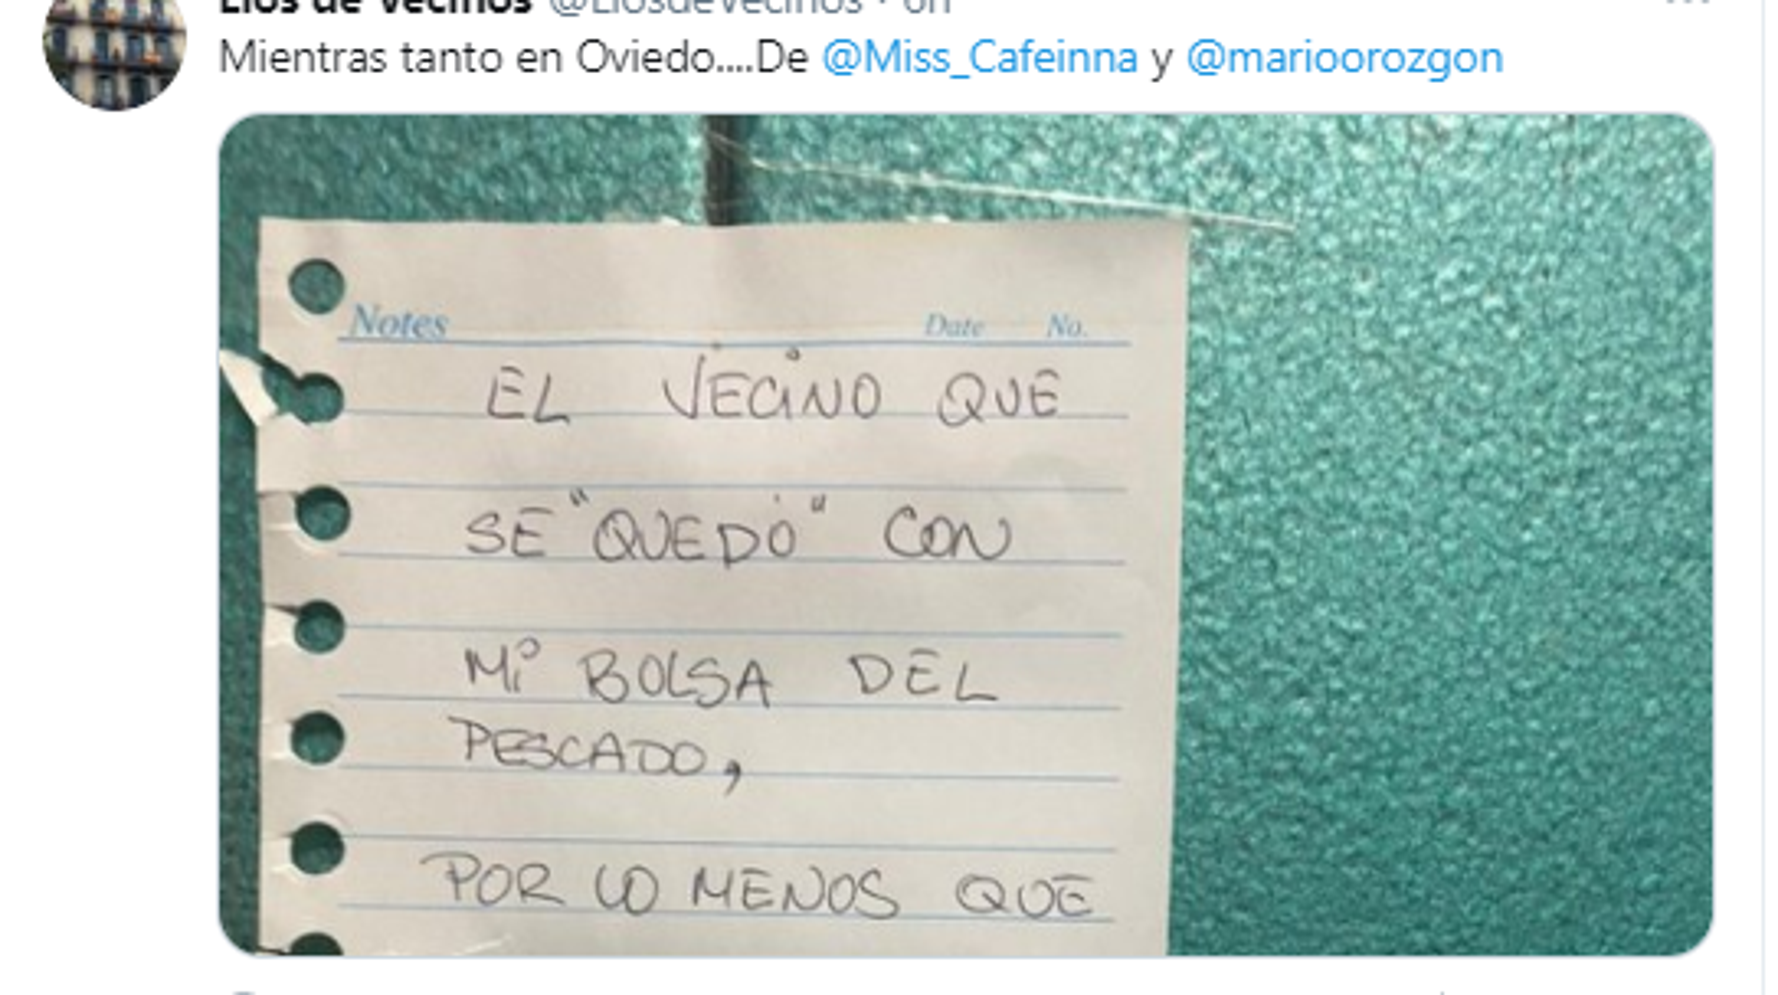 Líos de Vecinos @LiosdeVecinos · 6h
Mientras tanto en Oviedo....De @Miss_Cafeinna y @marioorozgon
Notes Date No.
EL VECINO QUE
SE "QUEDÓ" CON
Mi BOLSA DEL
PESCADO,
POR LO MENOS QUE